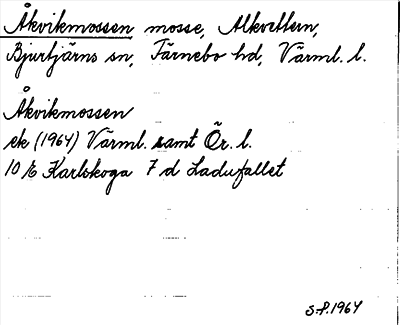 Åkvikmossen mosse, Alkvettern,
Bjurtjärns sn, Färnebo hd, Värml. l.
Åkvikmossen
ek (1964) Värml. samt Ör. l.
10 E Karlskoga 7 d Ladufallet
S.P. 1964